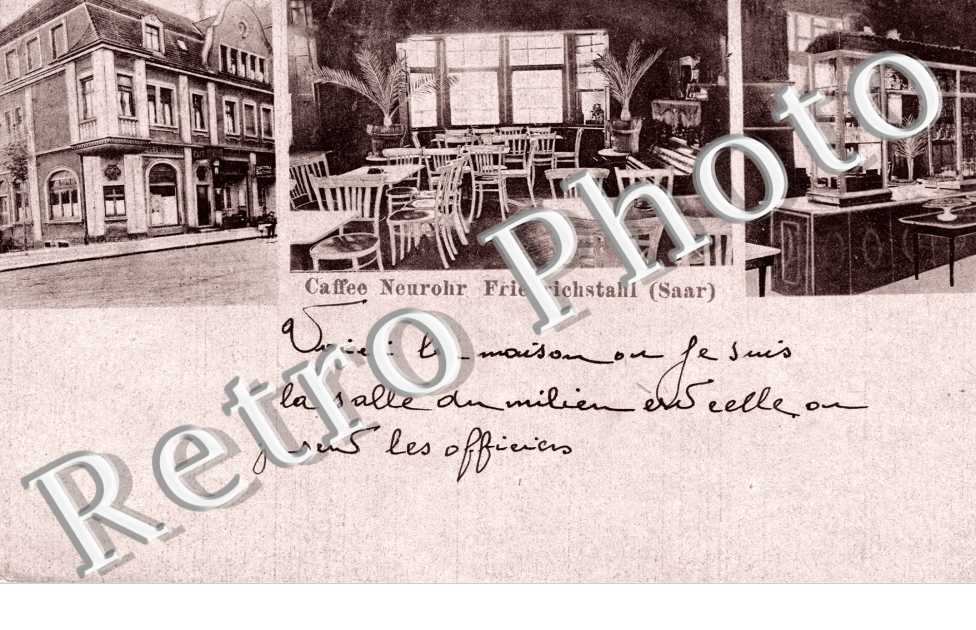 Caffee Neurohr Friedrichstahl (Saar)
Voici la maison ou je suis
la salle du milieu est celle ou
je sert les officiers
Retro Photo